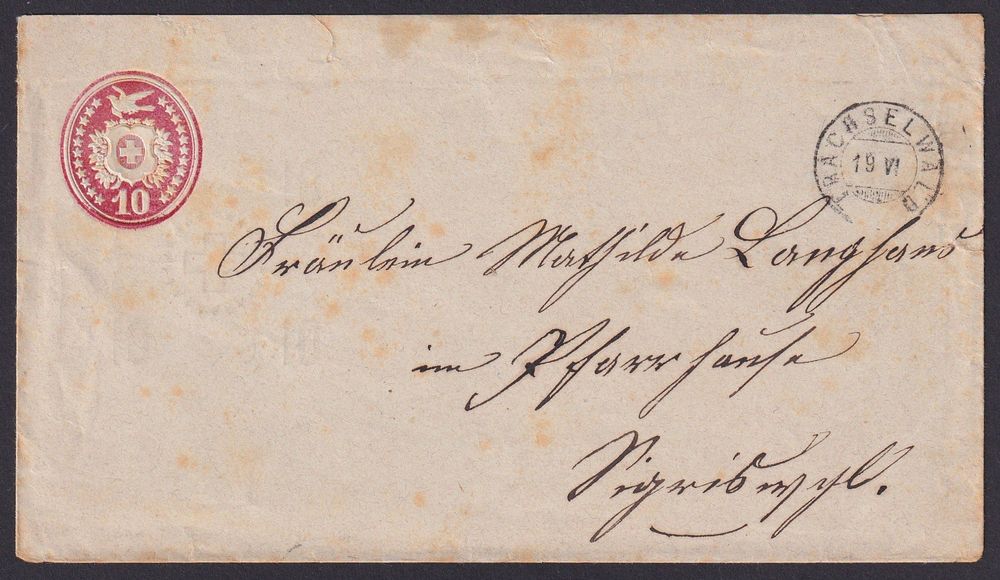 10
TRACHSELWALD
19 VI
Fräulein Mathilde Langhans
im Pfarrhause
Sigriswyl.